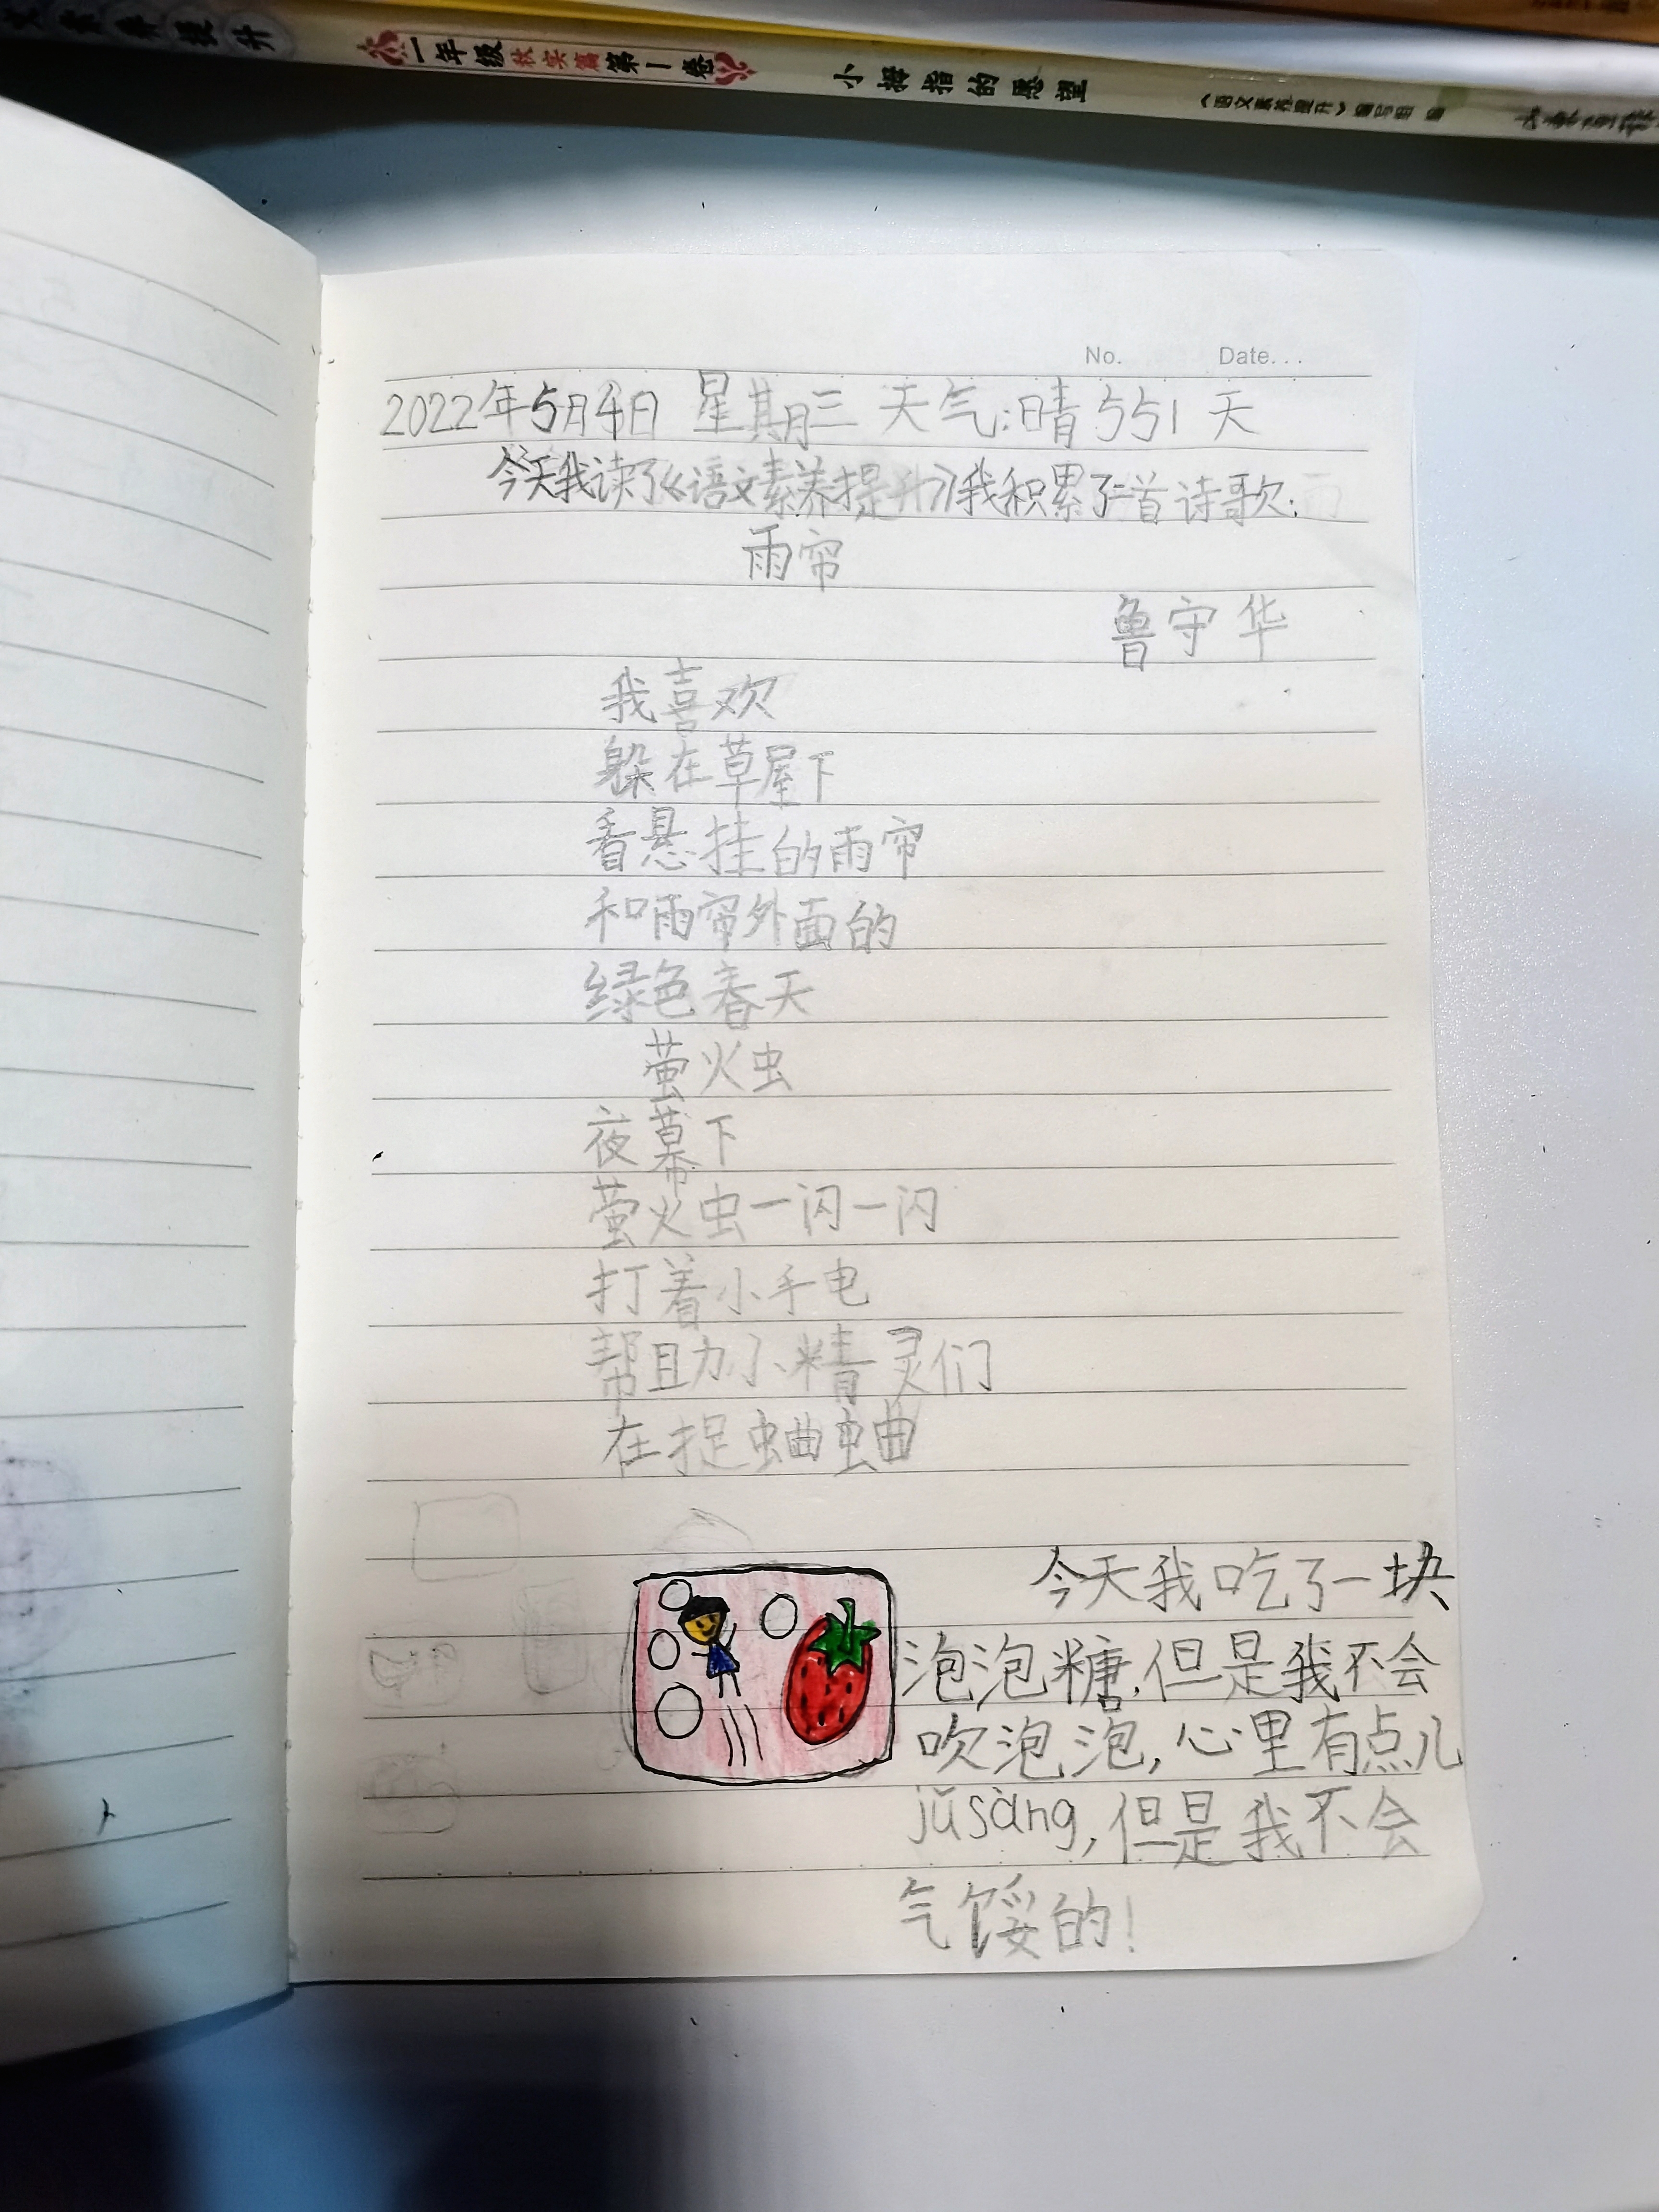 提升
一年级 秋实篇 第1卷
小拇指的愿望
《语文素养提升》编写组 编
No.
Date...
2022年5月4日 星期三 天气:晴 551 天
今天我读了《语文素养提升》我积累了二首诗歌:
雨帘
鲁守华
我喜欢
躲在草屋下
看悬挂的雨帘
和雨帘外面的
绿色春天
萤火虫
夜幕下
萤火虫一闪一闪
打着小手电
帮助小精灵们
在捉蛐蛐
今天我吃了一块
泡泡糖,但是我不会
吹泡泡,心里有点儿
jǔsàng,但是我不会
气馁的!